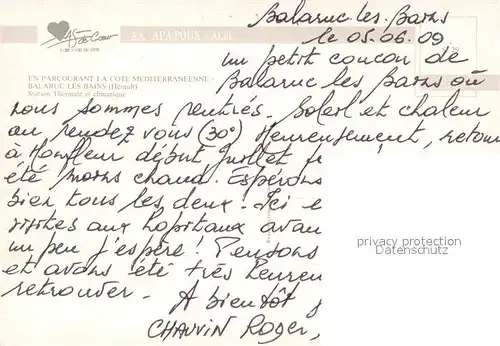 Balaruc-les-Bains
le 05.06.09
As de Cœur
S.A. APA-POUX - ALBI
un petit coucou de
EN PARCOURANT LA COTE MEDITERRANEENNE
BALARUC-LES-BAINS (Hérault)
Station Thermale et climatique
Balaruc les Bains où
nous sommes rentrés. Soleil et chaleur
au rendez vous (30°) Heureusement, retour
à Honfleur début Juillet
été moins chaud. Espérons
bien tous les deux! Ici
visites aux hopitaux avan
un peu j'espère! Pensons
et avons été très heureu
retrouver. A bientôt
CHAUVIN Roger,
privacy protection
Datenschutz